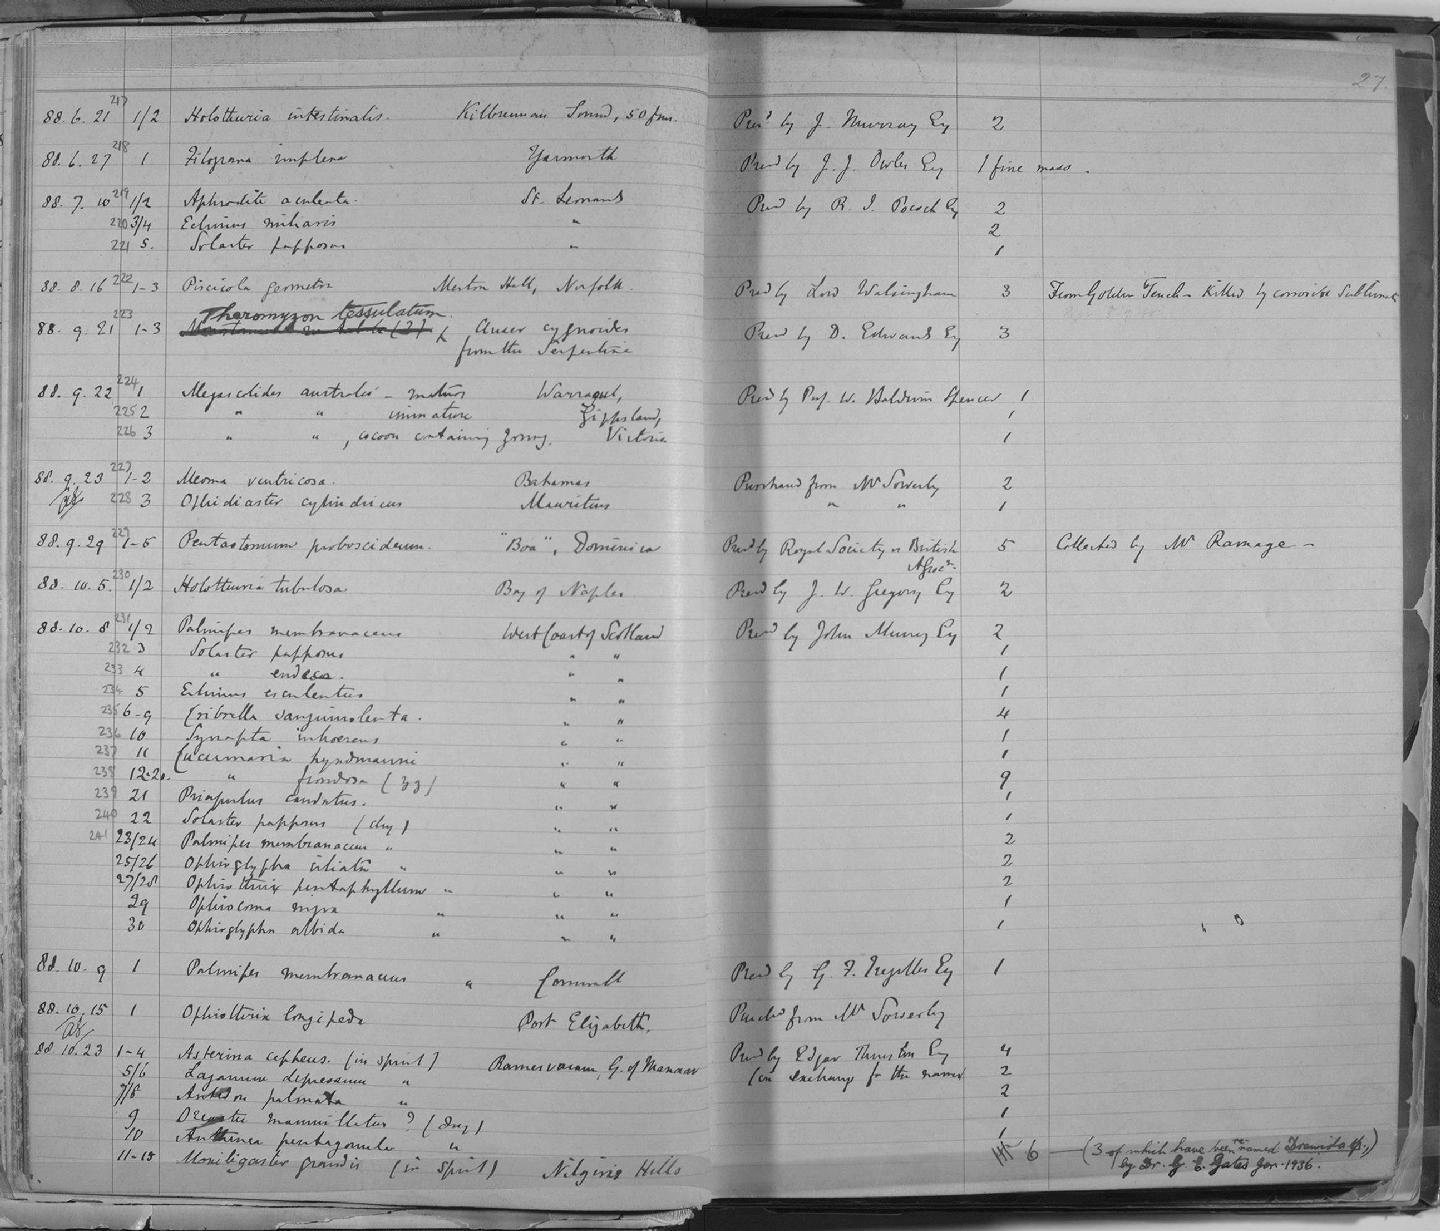 27
217
88. 6. 21 1/2 Holothuria intestinalis. Kilbrennan Sound, 50 fms. Pres'd by J. Murray Esq 2
218
88. 6. 27 1 Filograna implexa Yarmouth Pres'd by J. J. Owles Esq 1 fine mass.
88. 7. 10 219 1/2 Aphrodite aculeata. St. Leonards Pres'd by R. I. Pocock Esq 2
220 3/4 Echinus miliaris " 2
221 5. Solaster papposus " 1
88. 8. 16 222 1-3 Piscicola geometra Merton Hall, Norfolk. Pres'd by Lord Walsingham 3 From Golden Tench - Killed by corrosive Sublimate
223 Theromyzon tessulatum
88. 9. 21 1-3 Anser cygnoides Pres'd by D. Edwards Esq 3
from the Serpentine
88. 9. 22 224 1 Megascolides australis - mature Warragul, Pres'd by Prof. W. Baldwin Spencer 1
225 2 " " immature Gippsland, 1
226 3 " " , cocoon containing young. Victoria 1
227
88. 9. 23 1-2 Meoma ventricosa. Bahamas Purchased from Mr Sowerby 2
228 3 Ophidiaster cylindricus Mauritius " " 1
229
88. 9. 29 1-5 Pentastomum proboscideum. "Boa", Dominica Pres'd by Royal Society & British 5 Collected by Mr Ramage -
Assoc'n.
230
88. 10. 5. 1/2 Holothuria tubulosa Bay of Naples Pres'd by J. W. Gregory Esq 2
231
88. 10. 8 1/2 Palmipes membranaceus West Coast of Scotland Pres'd by John Murray Esq 2
232 3 Solaster papposus " " 1
233 4 " endeca. " " 1
234 5 Echinus esculentus " " 1
235 6-9 Cribrella sanguinolenta. " " 4
236 10 Synapta inhaerens " " 1
237 11 Cucumaria hyndmanni " " 1
238 12-20. " frondosa (yg) " " 9
239 21 Priapulus caudatus. " " 1
240 22 Solaster papposus (dry) " " 1
241 23/24 Palmipes membranaceus " " " 2
25/26 Ophioglypha ciliata " " " 2
27/28 Ophiothrix pentaphyllum " " " 2
29 Ophiocoma nigra " " " 1
30 Ophioglypha albida " " " 1
88. 10. 9 1 Palmipes membranaceus " Cornwall Pres'd by G. F. Tregelles Esq 1
88. 10. 15 1 Ophiothrix longipeda Port Elizabeth. Purch'd from Mr Sowerby
88 10. 23 1-4 Asterina cepheus. (in spirit) Rameswaram, G. of Manaar Pres'd by Edgar Thurston Esq 4
5/6 Laganum depressum " (in exchange for the names 2
7/8 Antedon palmata " 2
9 Oreaster mammillatus ? (dry) 1
10 Anthenea pentagonula " 1
11-15 Moniligaster grandis (in spirit) Nilgiris Hills 6 (3 of which have been re-named Drawida sp.,)
by Dr. G. E. Gates Jan. 1936.